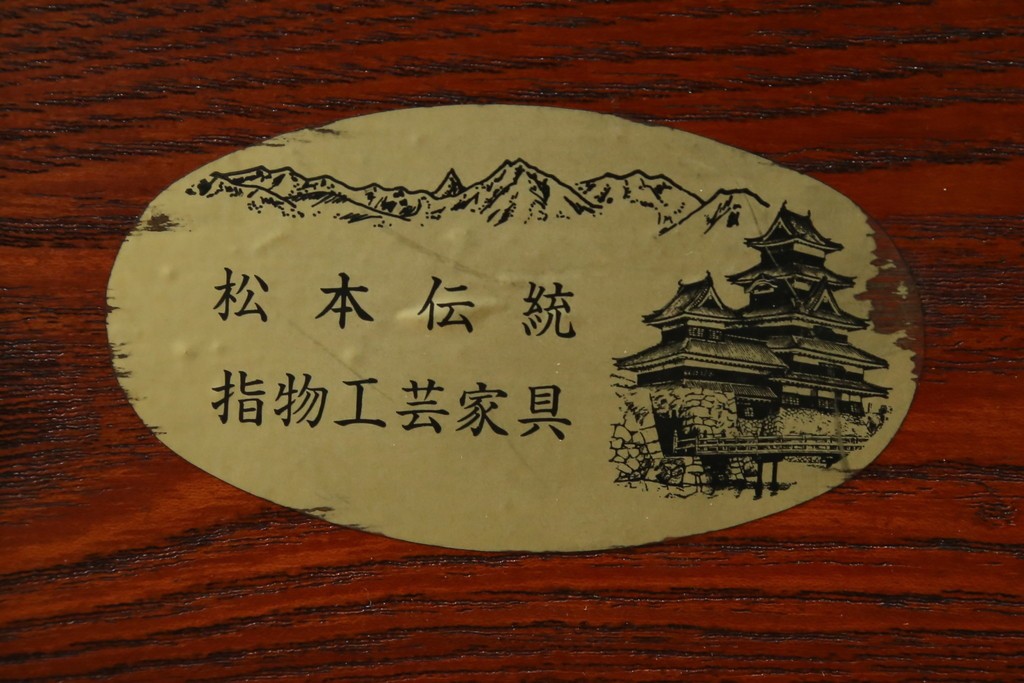 松本伝統
指物工芸家具